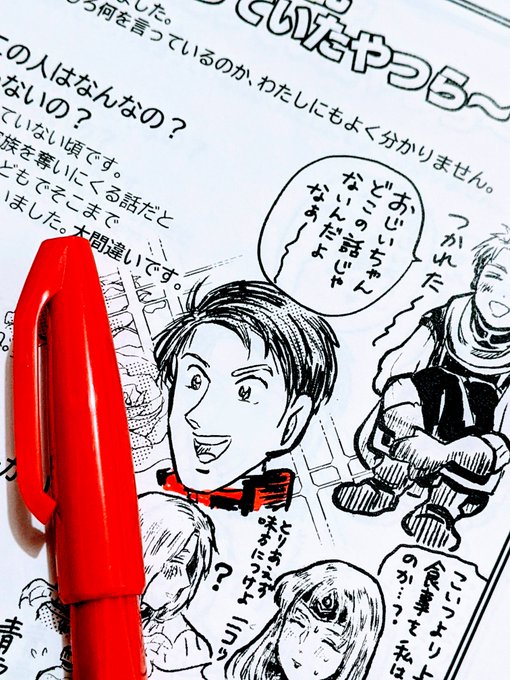 ました。
ていたやつら～
しろ何を言っているのか、わたしにもよく分かりません。
この人はなんなの？
ないの？
ていない頃です。
族を奪いにくる話だと
どもでそこまで
いました。大間違いです。
おじいちゃん
どこの話じゃ
ないんだよ
なぁ～
つかれた～
とりあえず
味方につけよ
ニコッ
？
こいつより上
食事を私は
のか…？
青